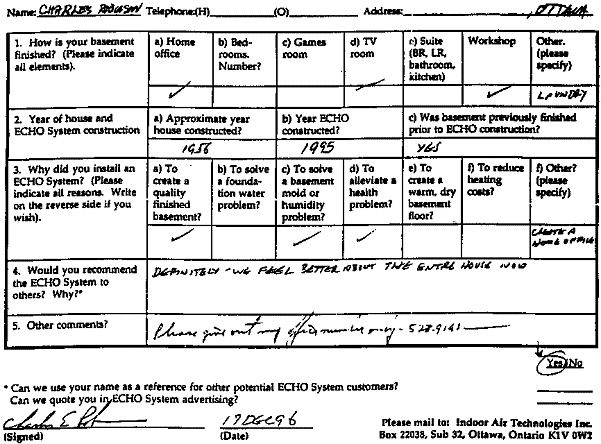 Name: CHARLES Telephone:(H) (O) Address: OTTAWA
1. How is your basement finished? (Please indicate all elements).
a) Home office
b) Bed-rooms. Number?
c) Games room
d) TV room
e) Suite (BR, LR, bathroom, kitchen)
Workshop
Other. (please specify)
✓ ✓ ✓ LAUNDRY
2. Year of house and ECHO System construction
a) Approximate year house constructed?
b) Year ECHO constructed?
c) Was basement previously finished prior to ECHO construction?
1956 1995 YES
3. Why did you install an ECHO System? (Please indicate all reasons. Write on the reverse side if you wish).
a) To create a quality finished basement?
b) To solve a founda-tion water problem?
c) To solve a basement mold or humidity problem?
d) To alleviate a health problem?
e) To create a warm, dry basement floor?
f) To reduce heating costs?
f) Other? (please specify)
✓ ✓ ✓ CREATE A HOME OFFICE
4. Would you recommend the ECHO System to others? Why?*
DEFINITELY - WE FEEL BETTER ABOUT THE ENTIRE HOUSE NOW
5. Other comments?
Please give out my office number only - 528-9141
Yes/No
* Can we use your name as a reference for other potential ECHO System customers?
Can we quote you in ECHO System advertising?
17 DEC 96
(Signed) (Date)
Please mail to: Indoor Air Technologies Inc.
Box 22038, Sub 32, Ottawa, Ontario K1V 0W2